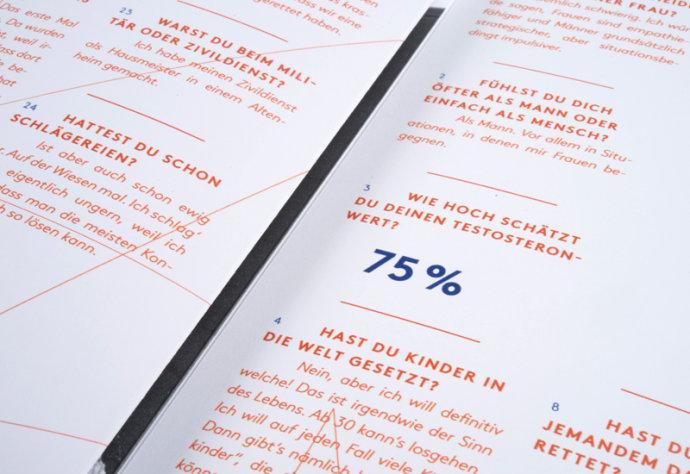 Das erste Mal
Da wurden
weil ir-
dort
be-
hat
wir eine
geretter haben.
23
WARST DU BEIM MILI-
TÄR ODER ZIVILDIENST?
Ich habe meinen Zivildienst
als Hausmeister in einem Alten-
heim gemacht.
24
HATTEST DU SCHON
SCHLÄGEREIEN?
Ist aber auch schon ewig
Auf der Wiesen mal. Ich schlag'
eigentlich ungern, weil ich
dass man die meisten Kon-
so lösen kann.
ER FRAU?
schwierig. Ich wür
de sagen, Frauen sind empathie-
fähiger und Männer grundsätzlich
strategischer, aber situationsbe-
dingt impulsiver.
2
FÜHLST DU DICH
ÖFTER ALS MANN ODER
EINFACH ALS MENSCH?
Als Mann. Vor allem in Situ-
ationen, in denen mir Frauen be-
gegnen.
3
WIE HOCH SCHÄTZT
DU DEINEN TESTOSTERON-
WERT?
75 %
4
HAST DU KINDER IN
DIE WELT GESETZT?
Nein, aber ich will definitiv
welche! Das ist irgendwie der Sinn
des Lebens. Ab 30 kann's losgehen.
Ich will auf jeden Fall viele
Dann gibt's nämlich
kinder", die
8
HAST DU
JEMANDEM D
RETTET